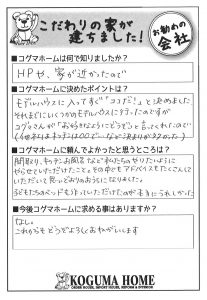 こだわりの家が
建ちました!
お勧めの
会社
■コグマホームは何で知りましたか?
HPや、家が近かったので
■コグマホームに決めたポイントは?
モデルハウスに入ってすぐ「ココだ!」と決めました
それまでにいくつかのモデルハウスに行ったのですが
コグマさんが「お好きなようにどうぞ」と言ってくれたので
■コグマホームに頼んでよかったと思うところは?
間取り、キッチン、お風呂など私たちのやりたいように
やらせていただけたこと。その中でもアドバイスもたくさんして
いただいて思いどおりのおうちになりました。
子どもたちのベッドも作っていただけたのがすごくうれしかった
■今後コグマホームに求める事はありますか?
なし。
これからもどうぞよろしくおねがいします
KOGUMA HOME